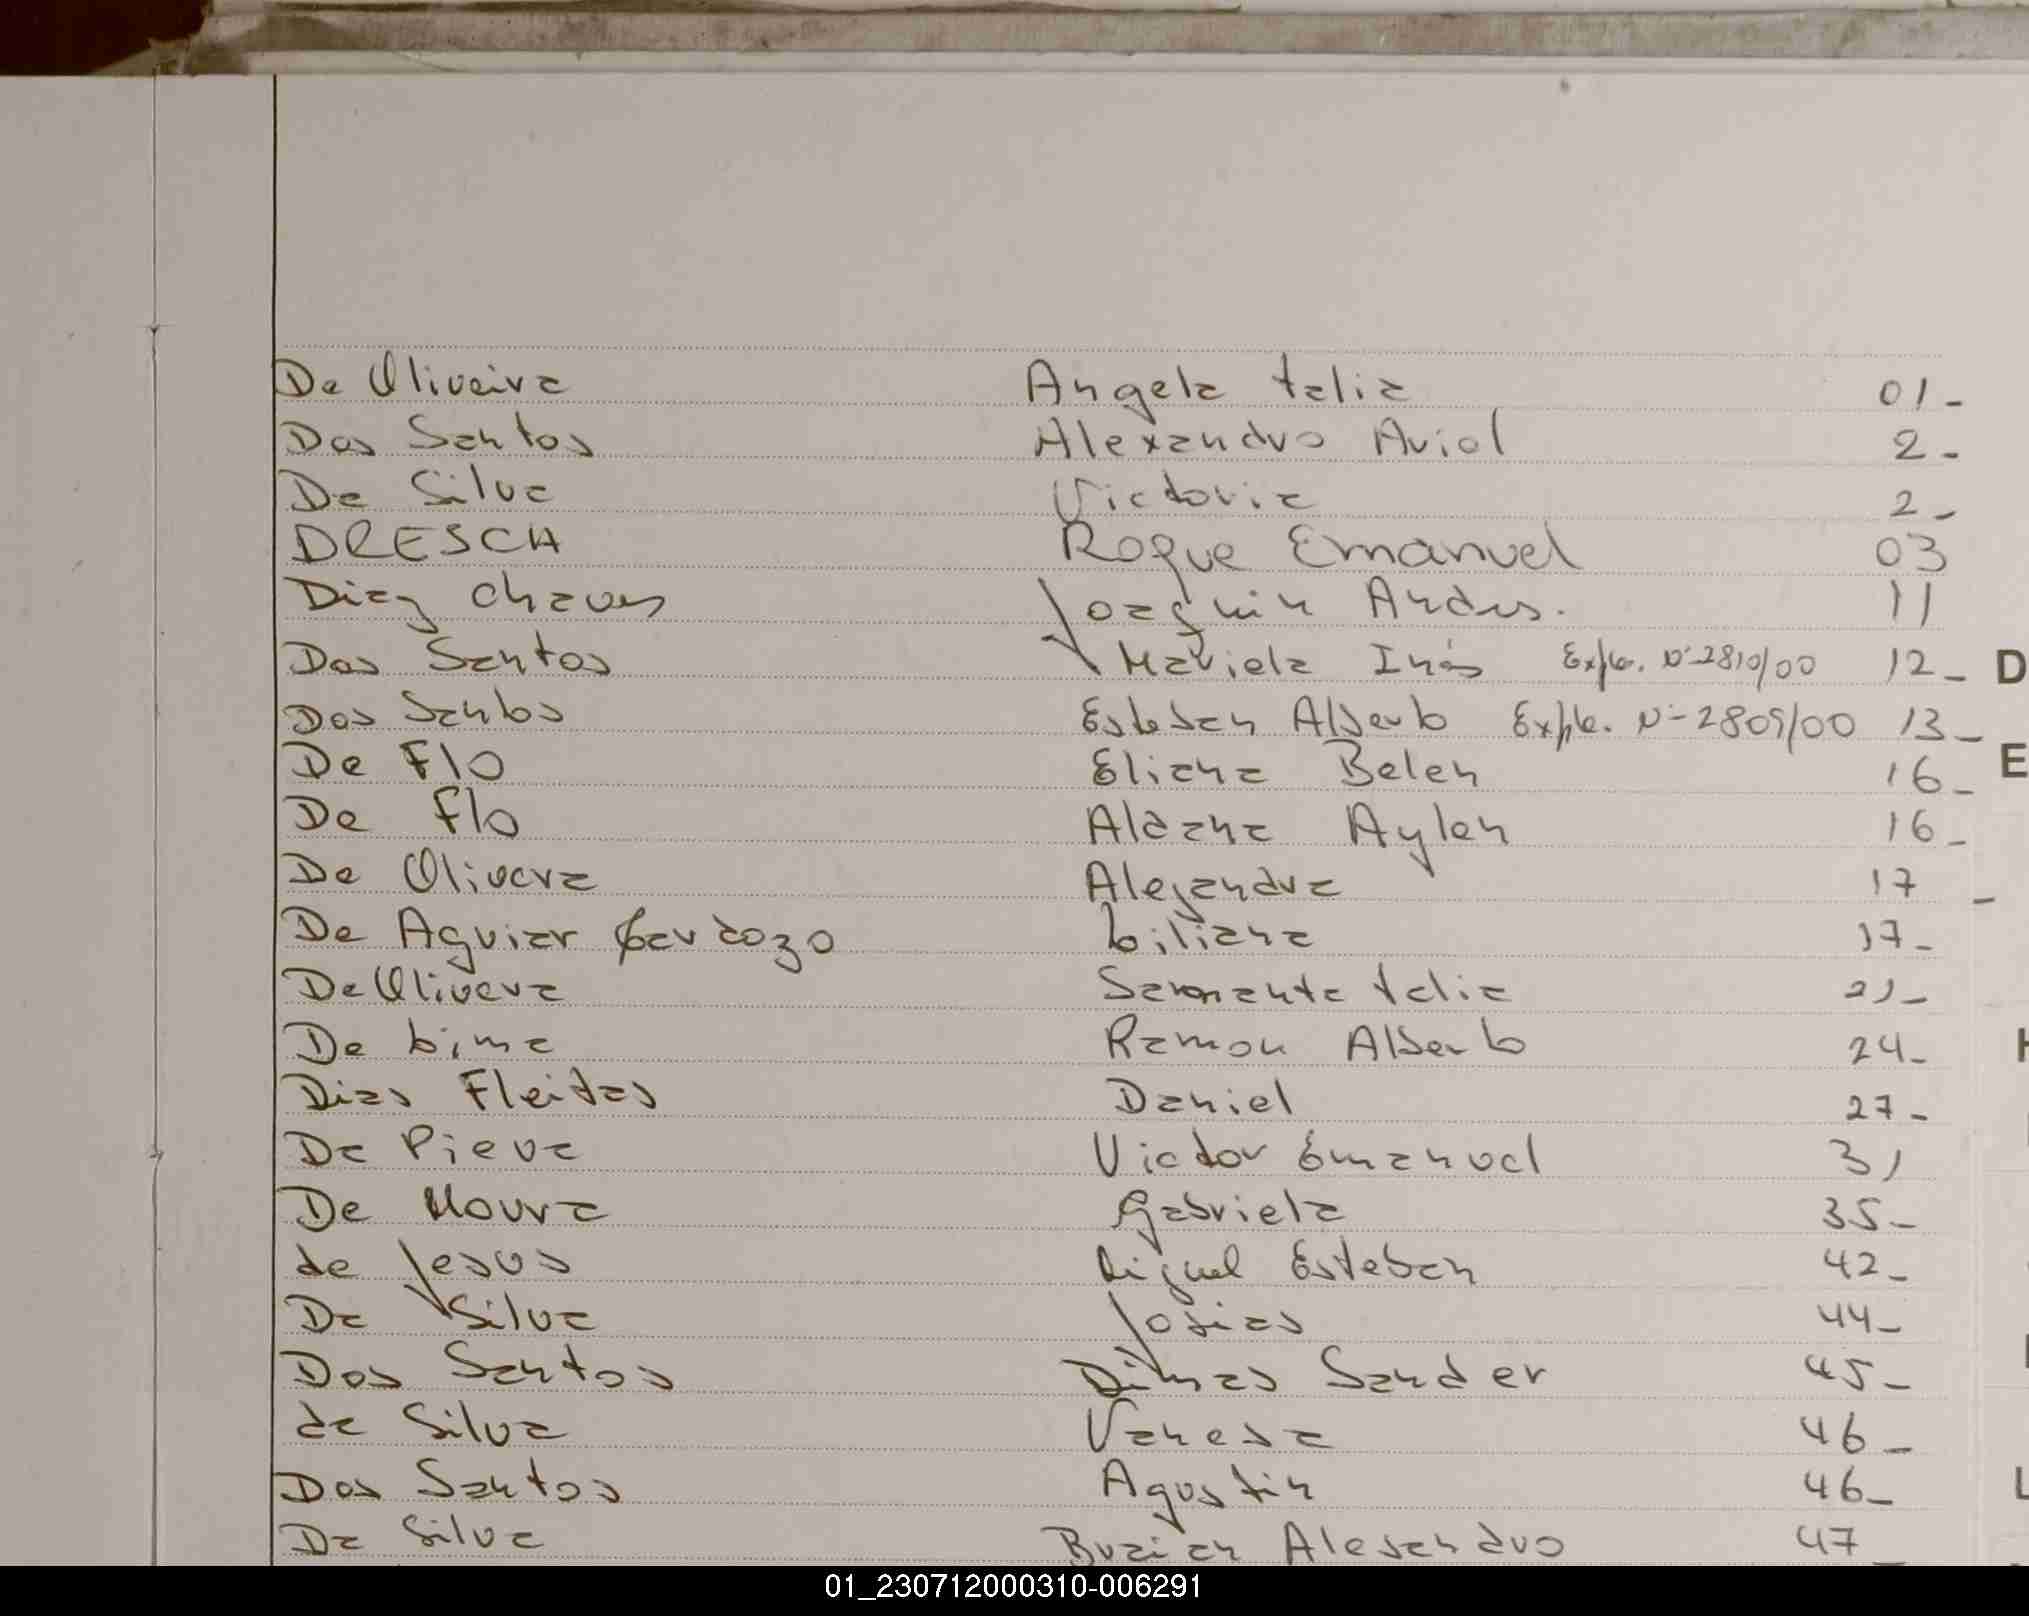 De Oliveira Angela talia 01-
Dos Santos Alexandro Ariel 2-
Da Silva Victoria 2-
DRESCH Roque Emanuel 03
Diaz Chaves Joaquin Andres. 11
Dos Santos Mariela Inés Expte. Nº 2810/00 12-
D
Dos Santos Esteban Alberto Expte. Nº 2809/00 13-
De Flo Eliana Belen 16-
E
De Flo Aldana Aylen 16-
De Olivera Alejandra 17-
De Aguiar Cardozo Liliana 17-
De Olivera Samanta talia 21-
De Lima Ramon Alberto 24-
Dias Fleitas Daniel 27-
Da Pieva Victor Emanuel 31
De Moura Gabriela 35-
de Jesus Miguel Esteban 42-
Da Silva Josias 44-
Dos Santos Dimas Sander 45-
da Silva Vanesa 46-
Dos Santos Agustin 46-
L
Da Silva Alejandro 47-
01_230712000310-006291